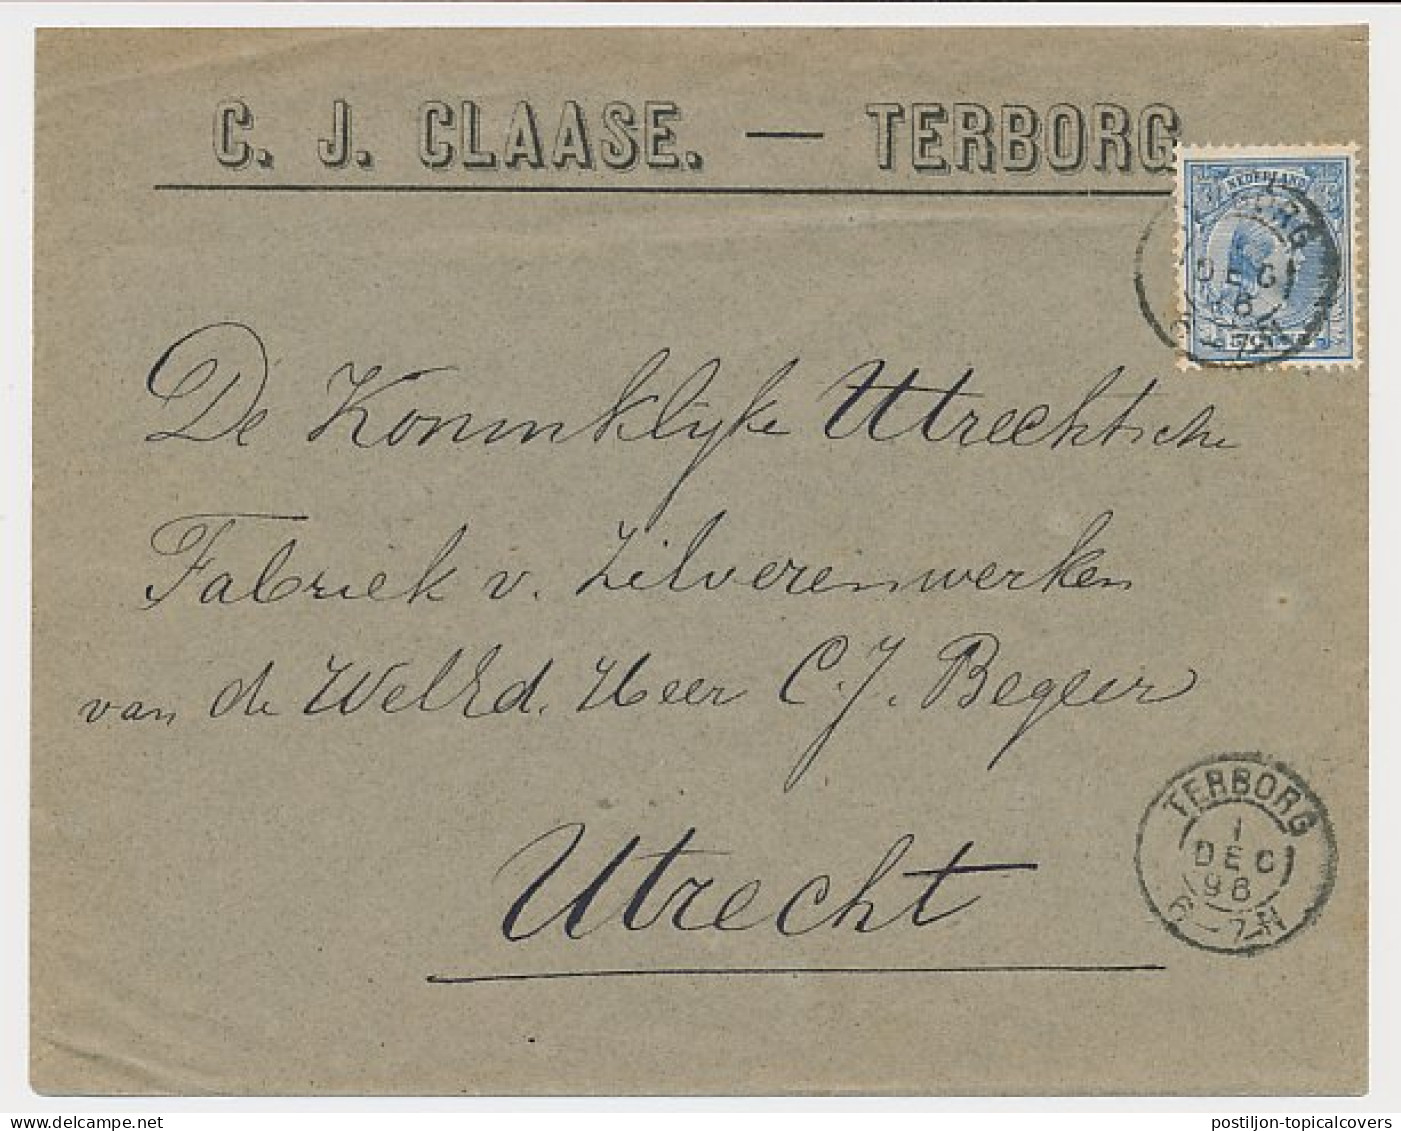 C. J. CLAASE. — TERBORG
NEDERLAND
TERBORG
1
DEC
98
6-7N
De Koninklijke Utrechtsche
Fabriek v. Zilverenwerken
van de WelEd. Heer C. J. Begeer
Utrecht
TERBORG
1
DEC
98
6-7N
postiljon-topicalcovers